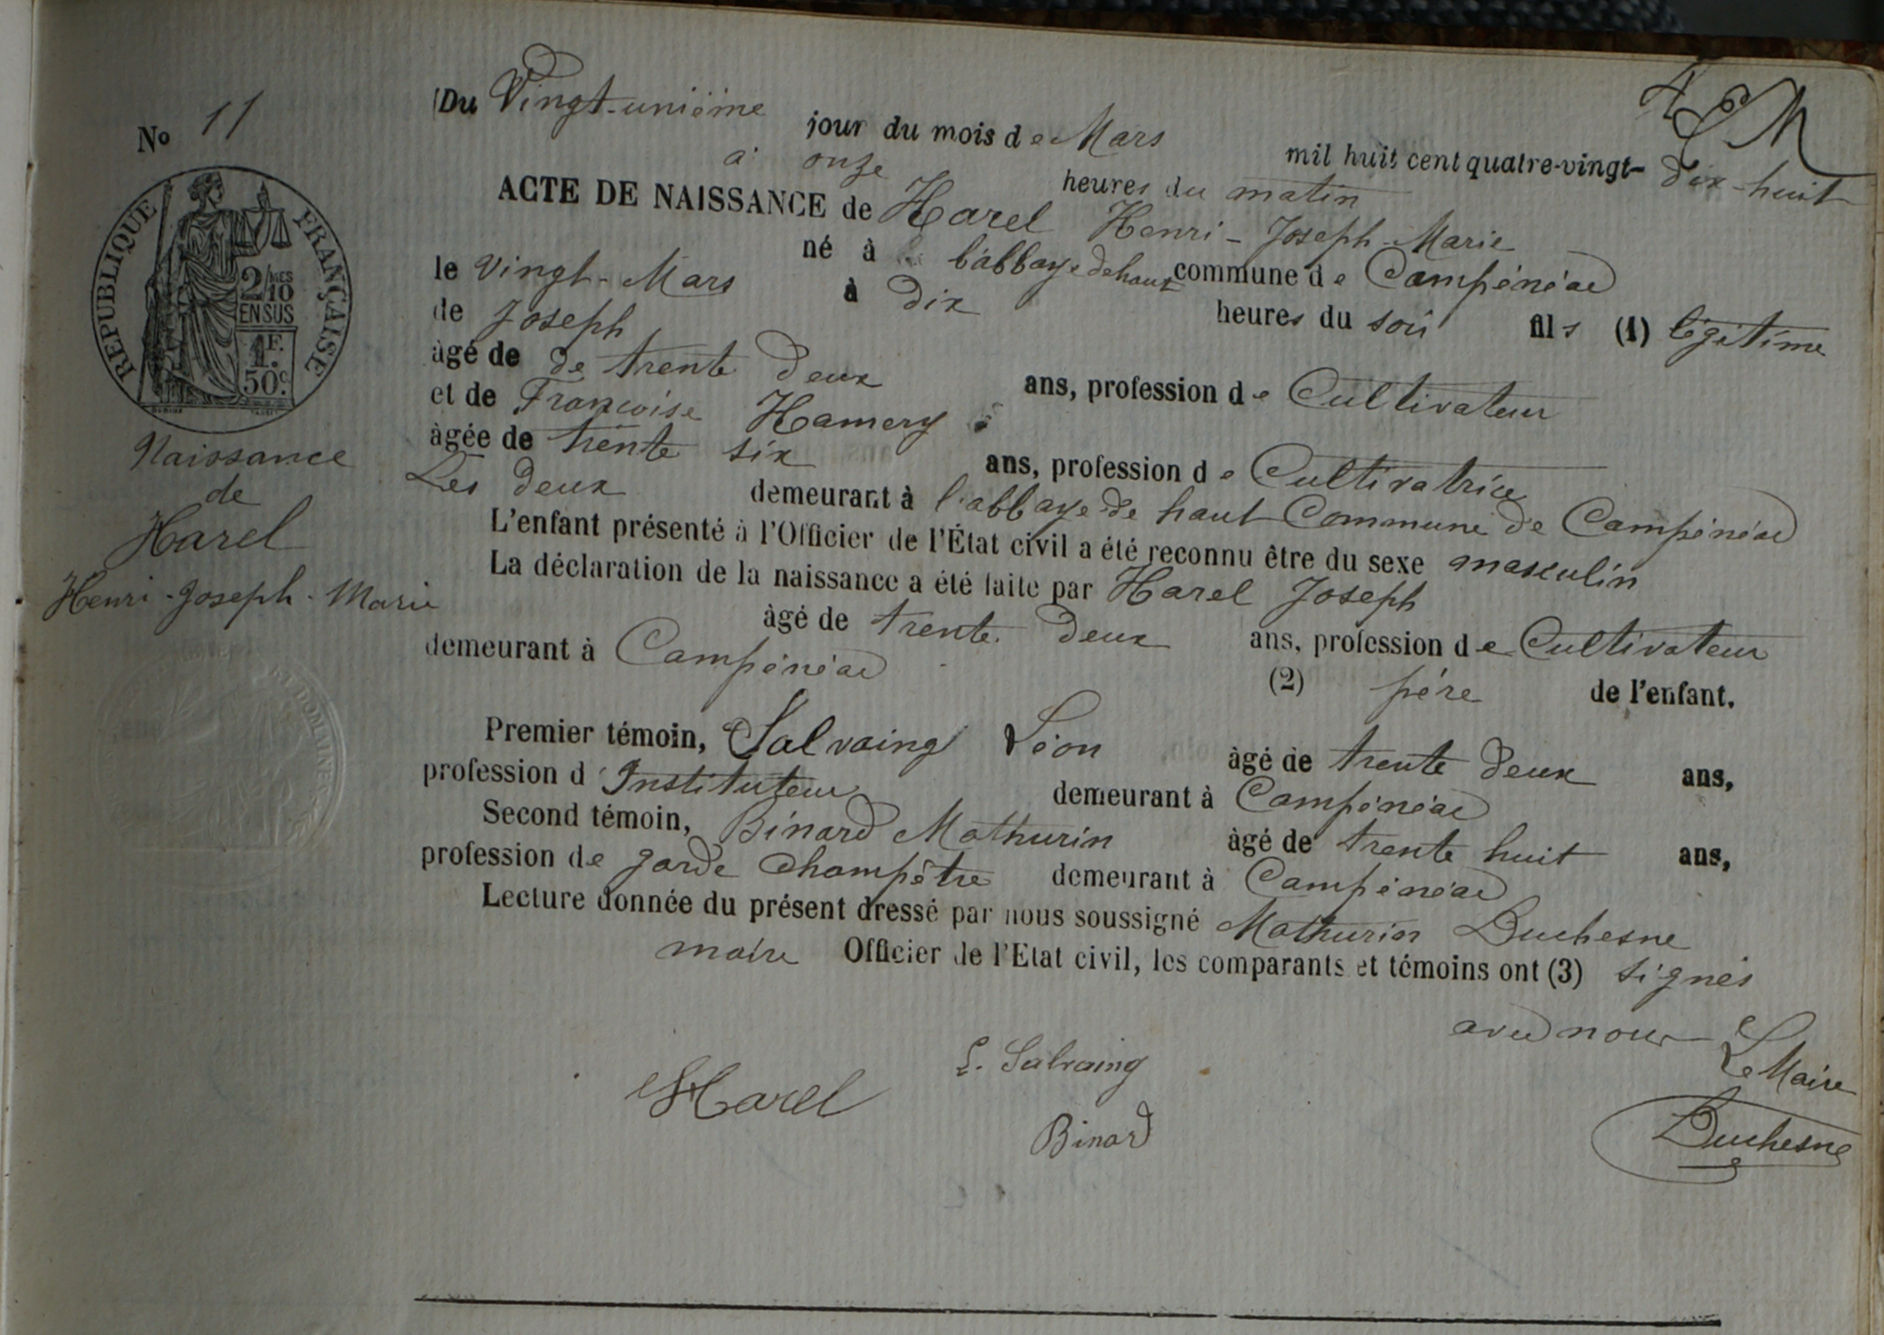 4
N° 11
Du Vingt-unième jour du mois de Mars mil huit cent quatre-vingt-dix-huit
à onze heures du matin
ACTE DE NAISSANCE de Harel Henri-Joseph-Marie
né à l'abbaye de haut commune de Campénéac
le vingt-Mars à Dix heures du soir fils (1) légitime
de Joseph
âgé de de trente deux ans, profession de Cultivateur
et de Françoise Hamery
âgée de trente six ans, profession de Cultivatrice
Les deux demeurant à l'abbaye de haut Commune de Campénéac
L'enfant présenté à l'Officier de l'État civil a été reconnu être du sexe masculin
La déclaration de la naissance a été faite par Harel Joseph
âgé de trente deux ans, profession de Cultivateur
demeurant à Campénéac (2) père de l'enfant.
Premier témoin, Salvaing Léon âgé de trente deux ans,
profession d'Instituteur demeurant à Campénéac
Second témoin, Binard Mathurin âgé de trente huit ans,
profession de garde champêtre demeurant à Campénéac
Lecture donnée du présent dressé par nous soussigné Mathurin Duchesne
maire Officier de l'Etat civil, les comparants et témoins ont (3) signés
avec nous
Le Maire
Harel
L. Salvaing
Binard
Duchesne
REPUBLIQUE FRANÇAISE
2/10 MES
EN SUS
1F.
50c.
Naissance
de
Harel
Henri-Joseph-Marie